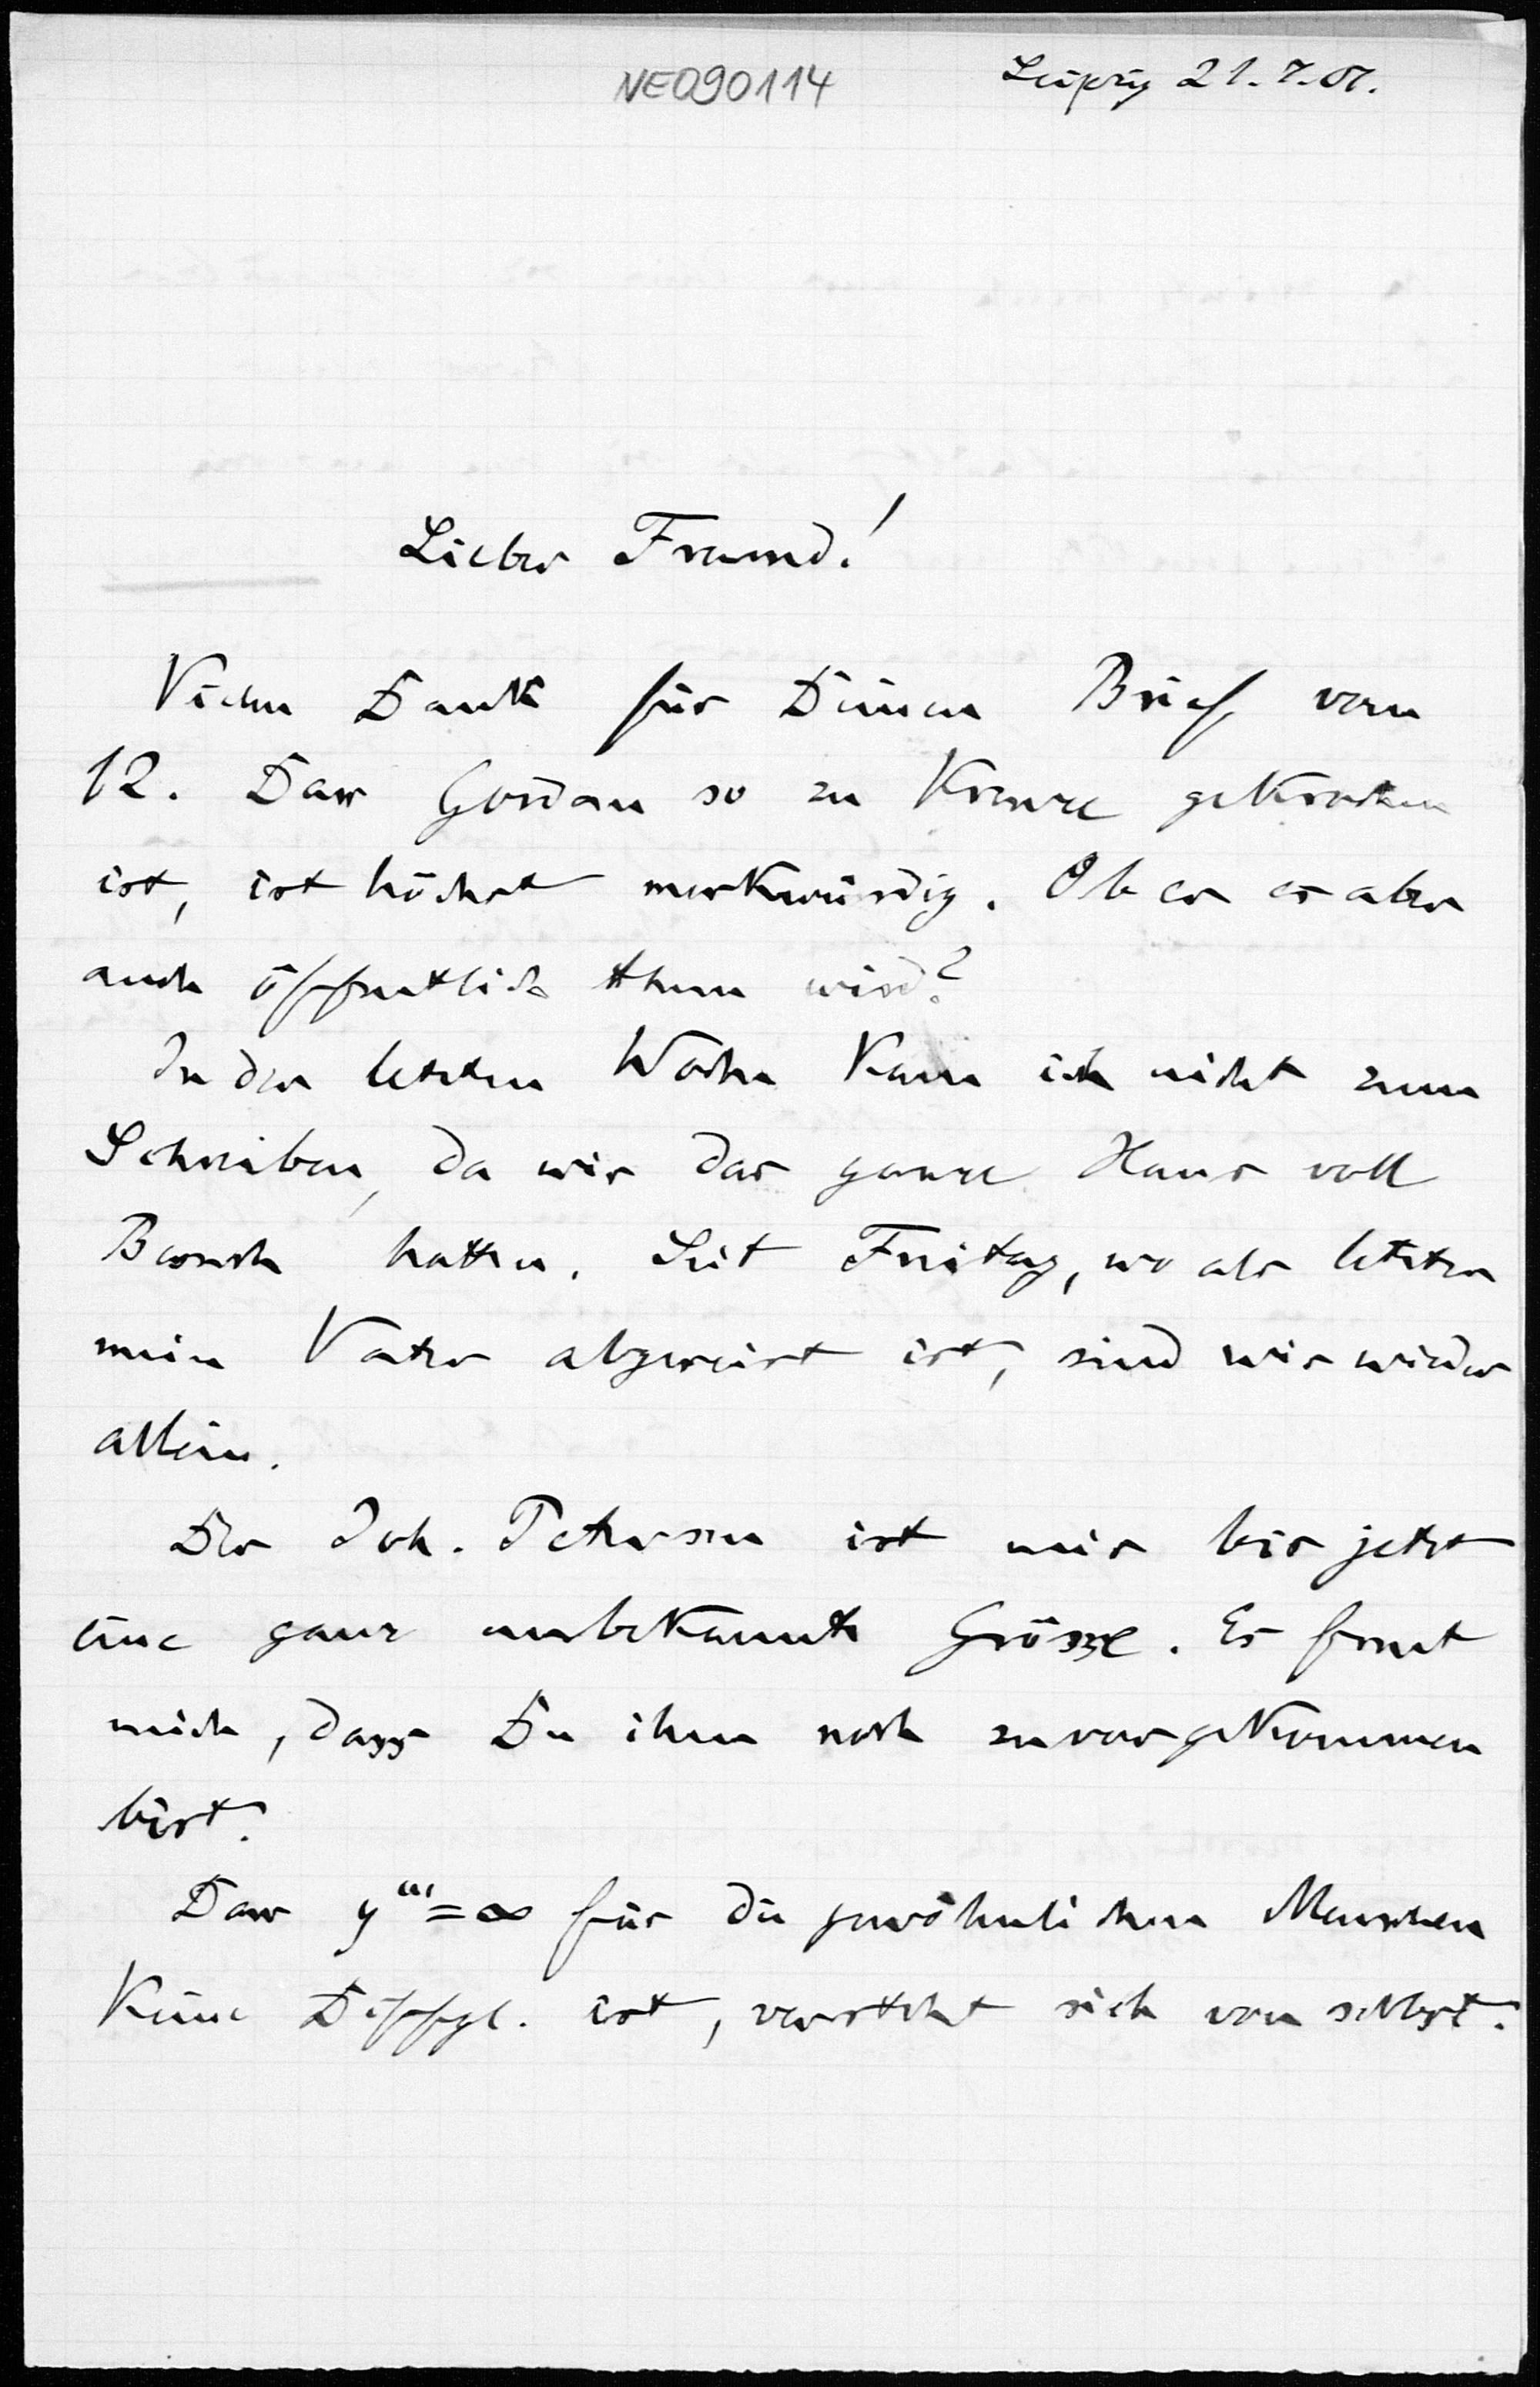 NE090114
Leipzig 21. 7. 01.
Lieber Freund!
Vielen Dank für Deinen Brief vom
12. Dass Gordan so zu Kreuze gekrochen
ist, ist höchst merkwürdig. Ob er es aber
auch öffentlich thun wird?
In der letzten Woche kam ich nicht zum
Schreiben, da wir das ganze Haus voll
Besuch hatten. Seit Freitag, wo als letzter
mein Vater abgereist ist, sind wir wieder
allein.
Der Joh. Petersen ist mir bis jetzt
eine ganz unbekannte Grösze. Es freut
mich, dass Du ihm noch zuvorgekommen
bist.
Dass y'''=∞ für die gewöhnlichen Menschen
keine Diffgl. ist, versteht sich von selbst.